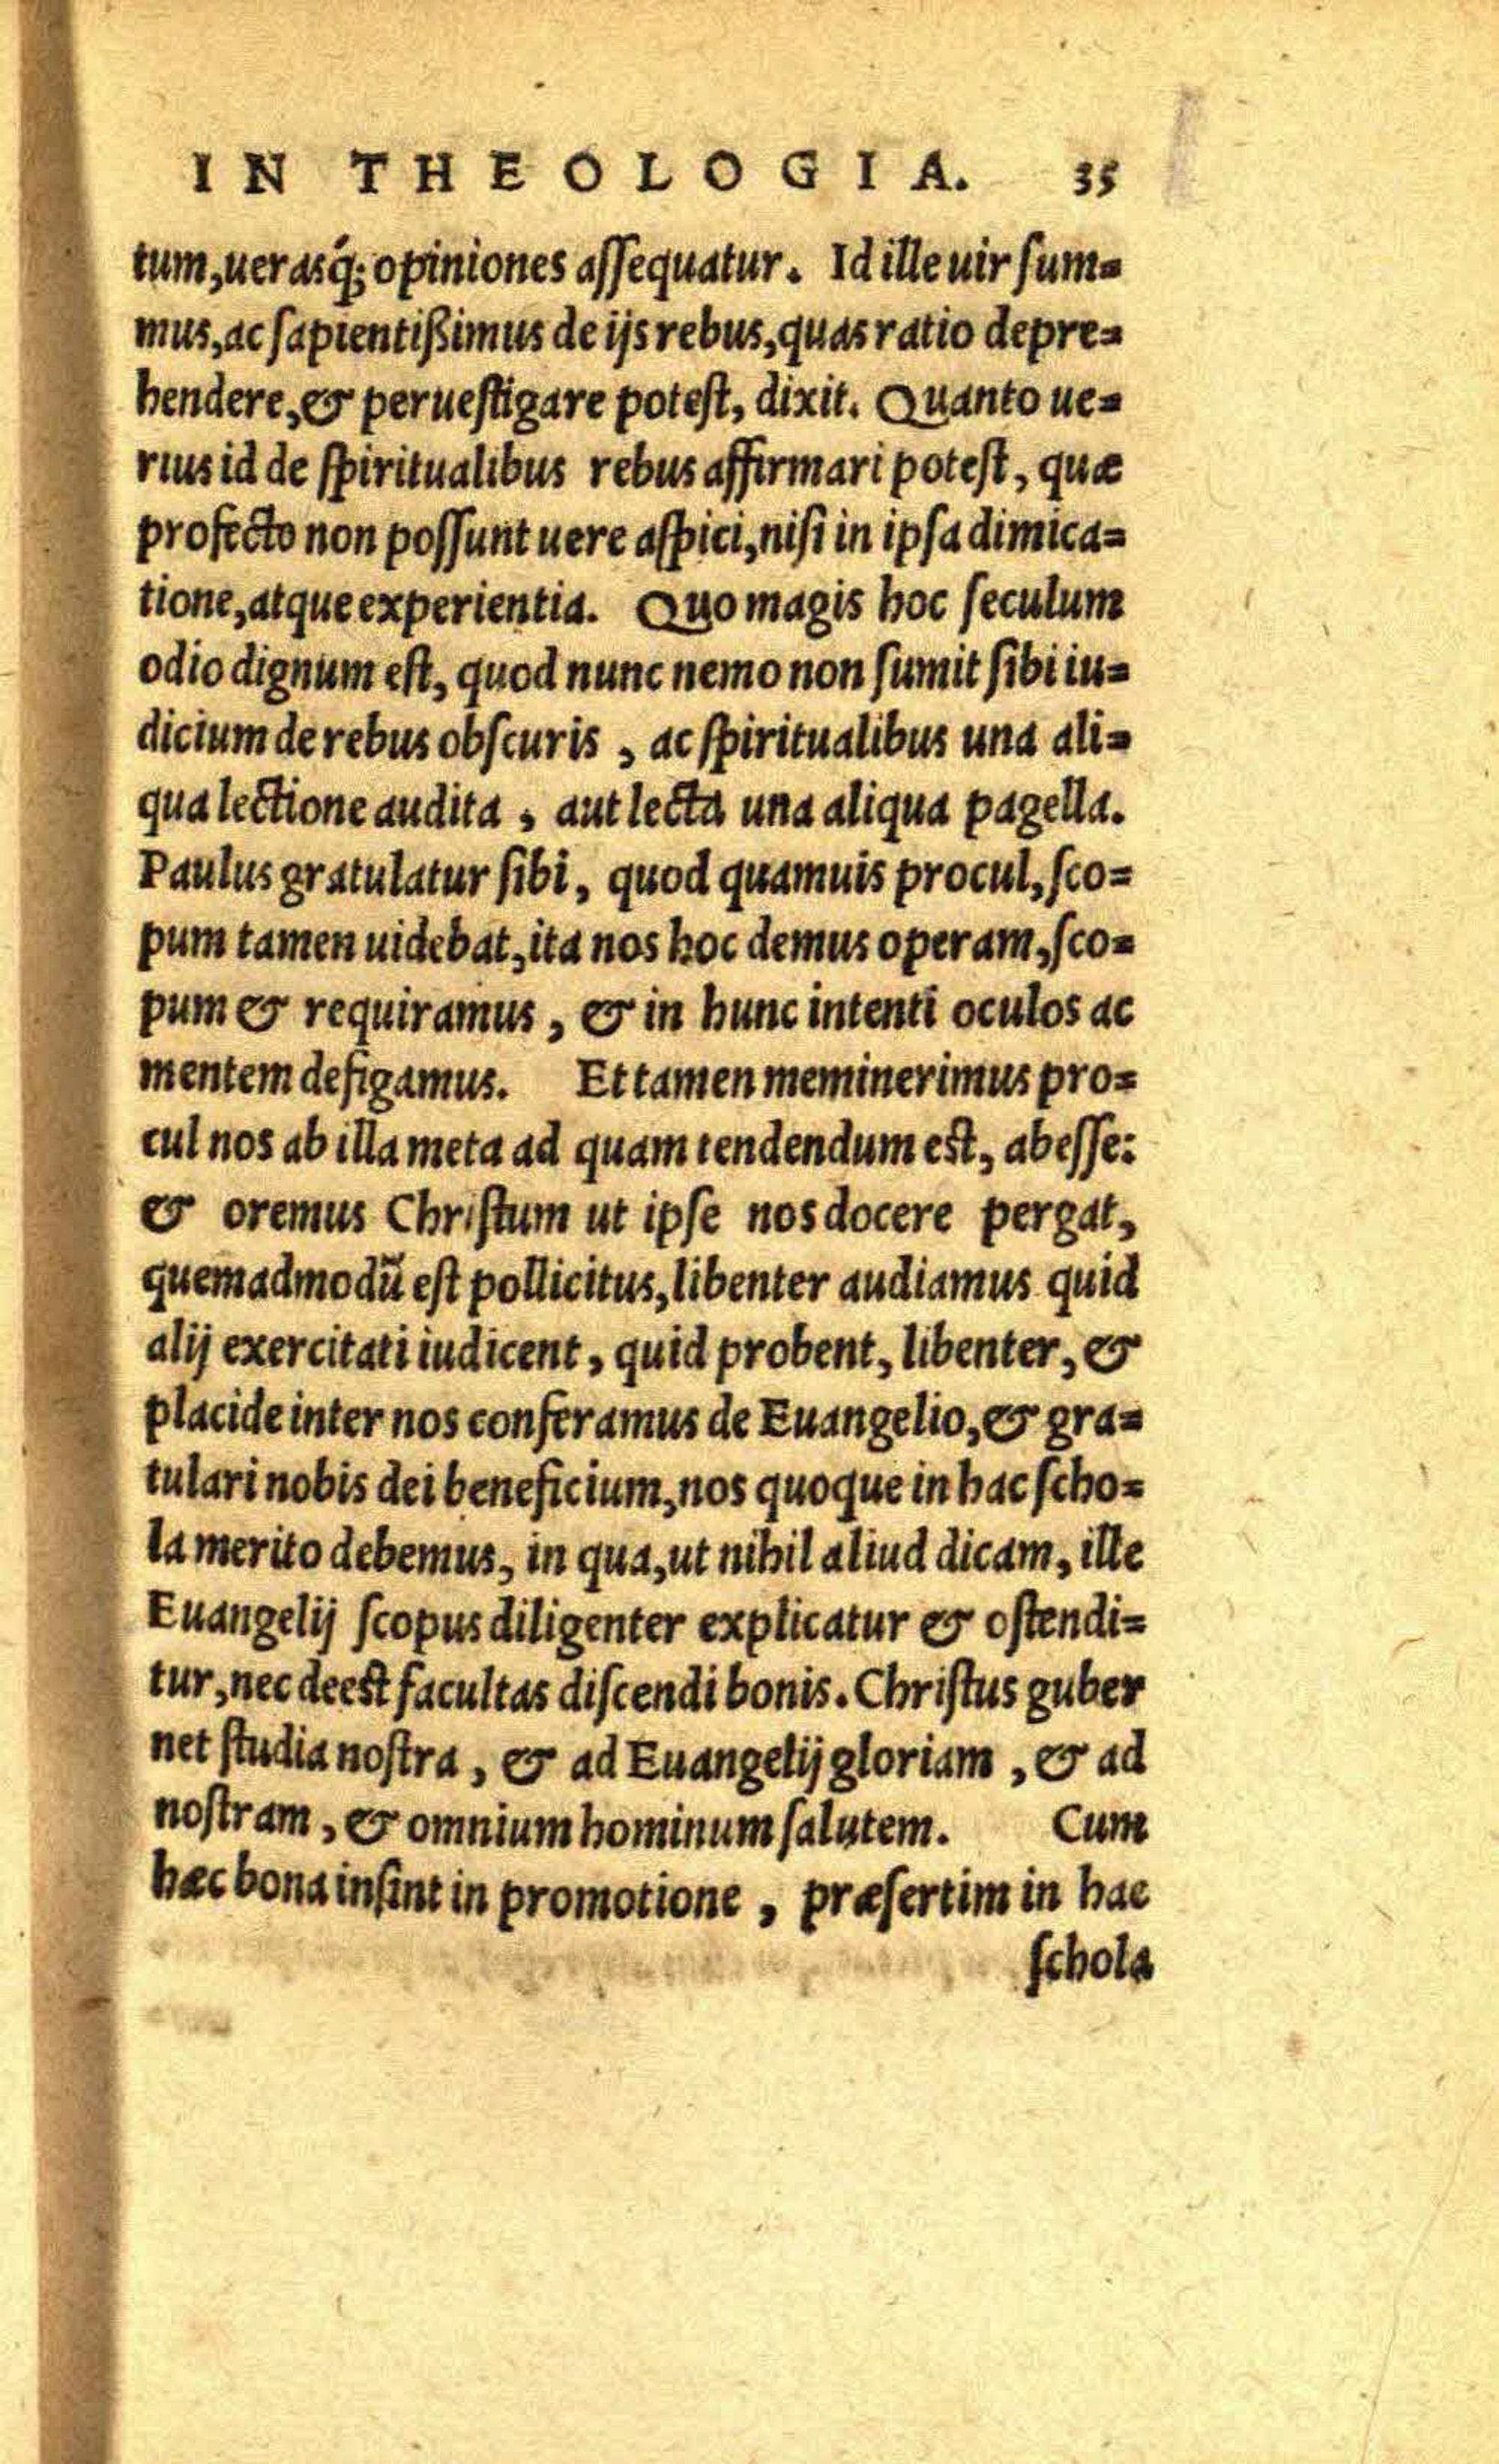 IN THEOLOGIA. 35
tum, uerasq́; opiniones aſſequatur. Id ille uir ſum=
mus, ac ſapientißimus de ijs rebus, quas ratio depre=
hendere, & perueſtigare poteſt, dixit. Quanto ue=
rius id de ſpiritualibus rebus affirmari poteſt, quæ
profecto non poſſunt uere aſpici, niſi in ipſa dimica=
tione, atque experientia. Quo magis hoc ſeculum
odio dignum eſt, quod nunc nemo non ſumit ſibi iu=
dicium de rebus obſcuris, ac ſpiritualibus una ali=
qua lectione audita, aut lecta una aliqua pagella.
Paulus gratulatur ſibi, quod quamuis procul, ſco=
pum tamen uidebat, ita nos hoc demus operam, ſco=
pum & requiramus, & in hunc intenti oculos ac
mentem defigamus. Et tamen meminerimus pro=
cul nos ab illa meta ad quam tendendum eſt, abeſſe:
& oremus Chriſtum ut ipſe nos docere pergat,
quemadmodũ eſt pollicitus, libenter audiamus quid
alij exercitati iudicent, quid probent, libenter, &
placide inter nos conferamus de Euangelio, & gra=
tulari nobis dei beneficium, nos quoque in hac ſcho=
la merito debemus, in qua, ut nihil aliud dicam, ille
Euangelij ſcopus diligenter explicatur & oſtendi=
tur, nec deeſt facultas diſcendi bonis. Chriſtus guber
net ſtudia noſtra, & ad Euangelij gloriam, & ad
noſtram, & omnium hominum ſalutem. Cum
hæc bona inſint in promotione, præſertim in hac
ſchola